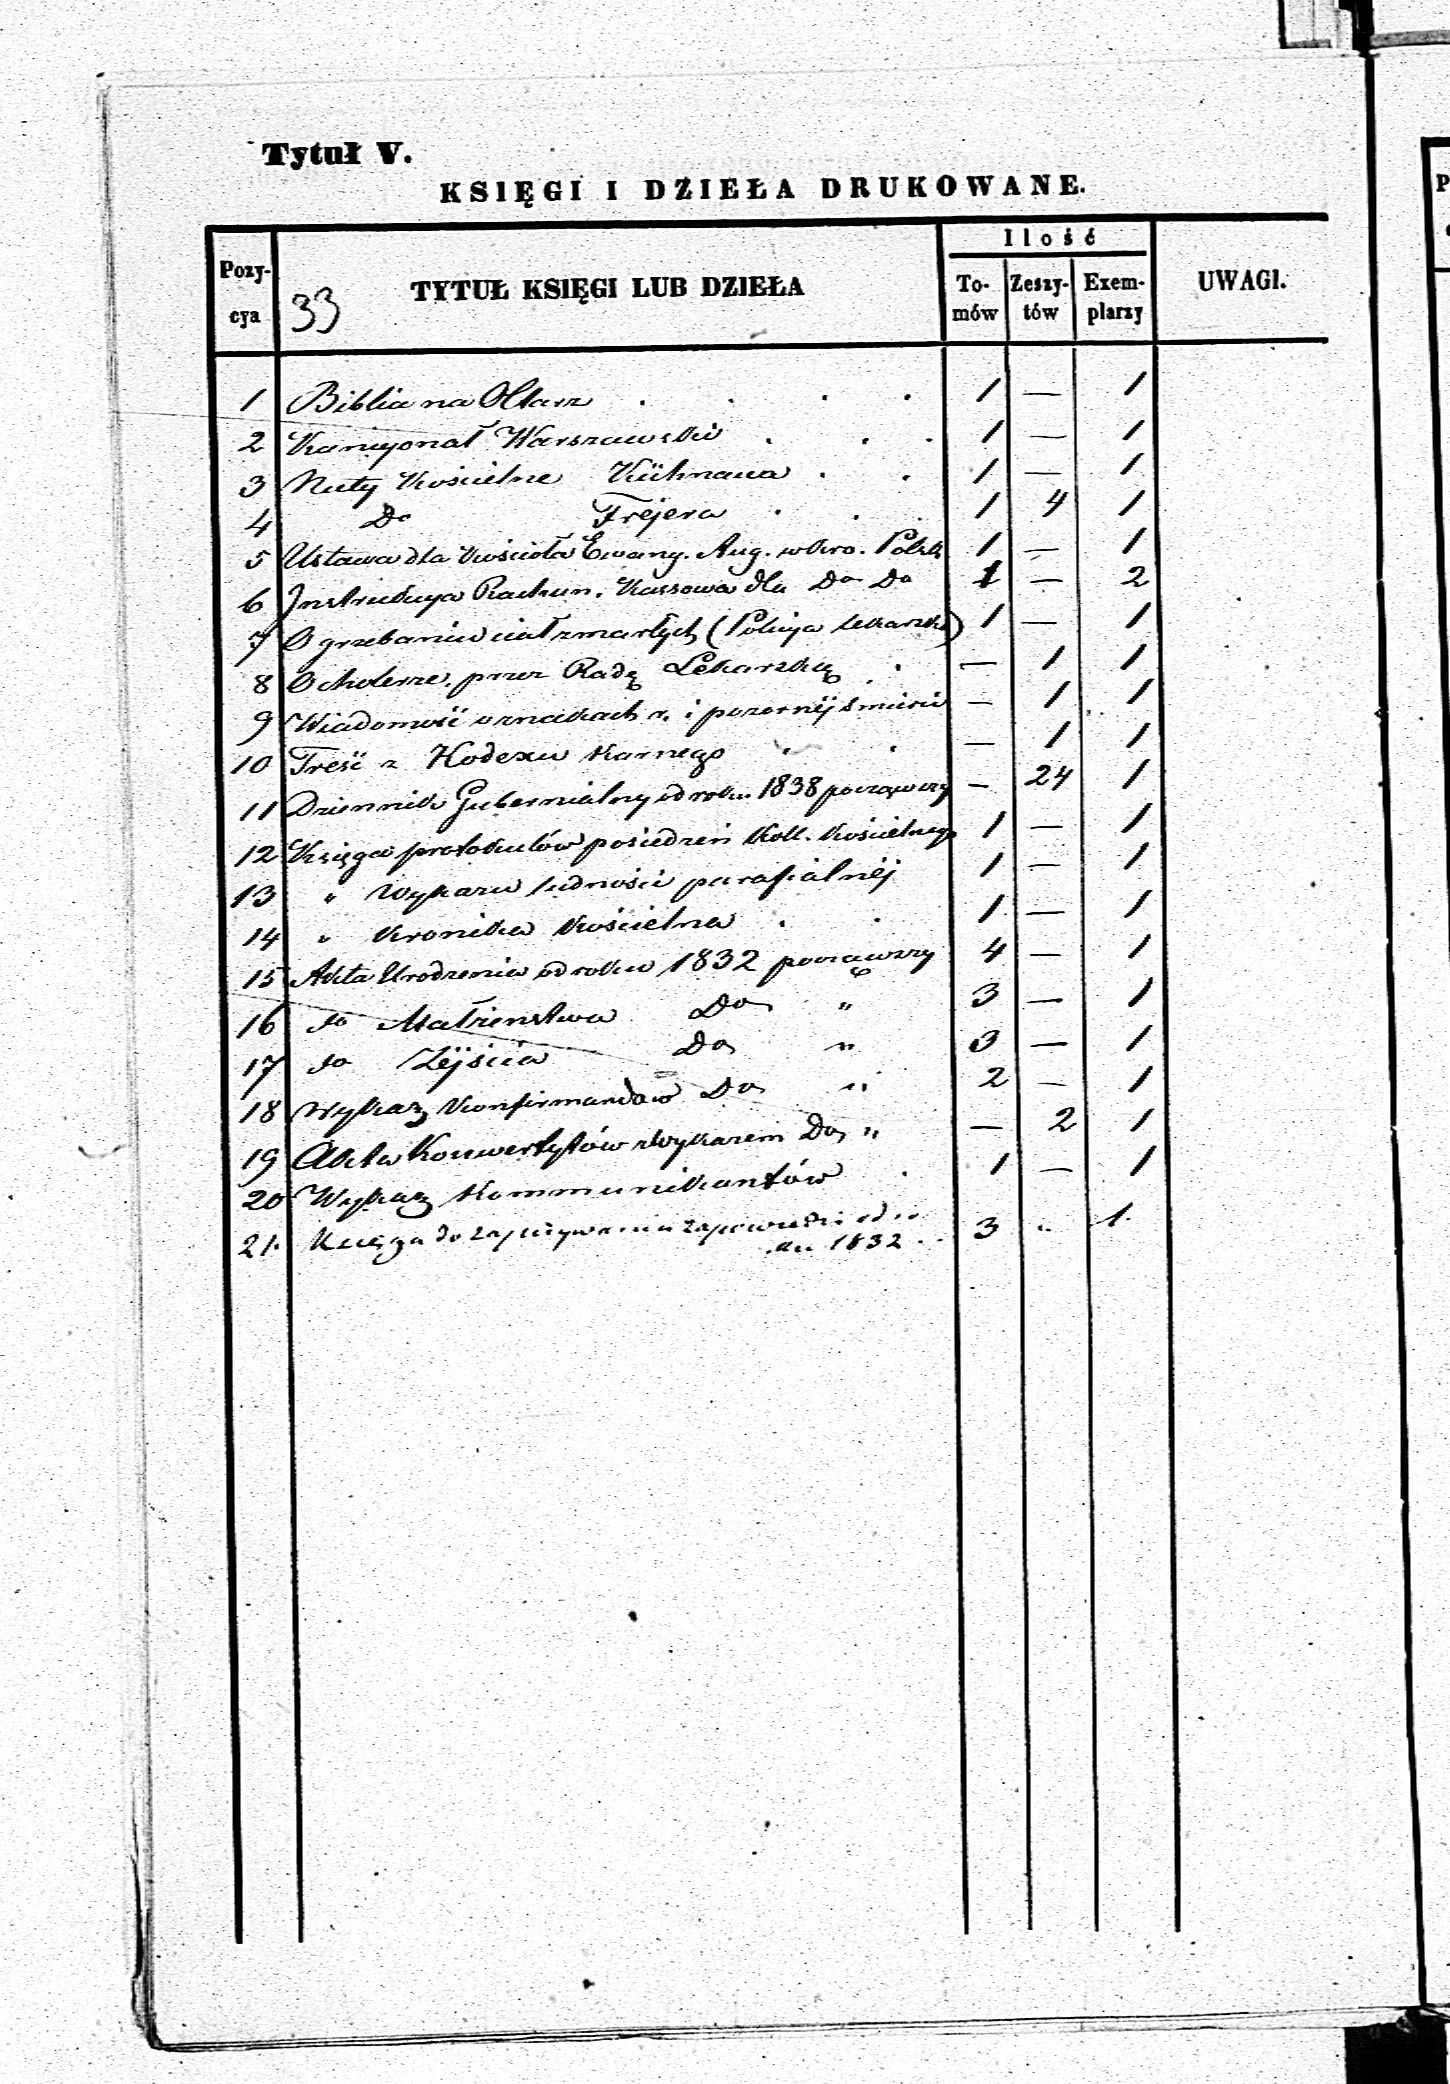 Tytuł V.
KSIĘGI I DZIEŁA DRUKOWANE.
Pozy-
cya
33
TYTUŁ KSIĘGI LUB DZIEŁA
Ilość
To-
mów
Zeszy-
tów
Exem-
plarzy
UWAGI.
1 Biblia na Ołtarz . . . . 1 — 1
2 Kancyonał Warszawski . . . 1 — 1
3 Nuty Kościelne Kühnaua . . 1 — 1
4 Do Frejera . . . 1 4 1
5 Ustawa dla Kościoła Ewang. Aug. w Kro. Polsk 1 — 1
6 Instrukcya Rachun. Kassowa dla Do Do 1 — 2
7 O grzebaniu ciał zmarłych (Policya lekarska) 1 — 1
8 O cholerze, przez Radę Lekarską . — 1 1
9 Wiadomość o znakach r. i pozornéj śmierci — 1 1
10 Treść z Kodexu Karnego . . — 1 1
11 Dziennik Gubernialny od roku 1838 począwszy — 24 1
12 Księga protokułów posiedzeń Koll. Kościelnego 1 — 1
13 " Wykazu ludności parafialnéj 1 — 1
14 " Kronika Kościelna . . 1 — 1
15 Akta Urodzenia od roku 1832 począwszy 4 — 1
16 do Małżenstwa Do " 3 — 1
17 do Zéjścia Do " 3 — 1
18 Wykaz Konfirmandów Do " 2 — 1
19 Akta Konwertytów z Wykazem Do " — 2 1
20 Wykaz Kommunikantów . 1 — 1
21. Księga do zapisywania zapowiedzi od ro
ku 1832 . 3 " 1.
P